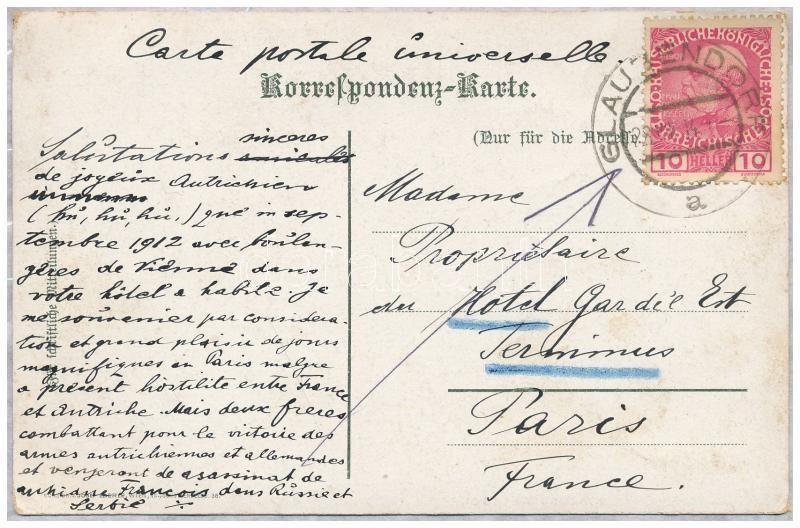 Carte postale universelle.
Korrespondenz-Karte.
(Nur für die Adresse
GLAU ENDORF
a
10 HELLER 10
Salutations sinceres
de joyeux Autrichien
(hu, hu, hu,) qué in sep-
tembre 1912 avec boulan-
gères de Vienne dans
votre hôtel a habité. Je
me souvenier par considera-
tion et grand plaisir de jours
magnifiques en Paris malgre
a présent hostilité entre France
et Autriche. Mais deux freres
combattant pour le victoire des
armes autrichiennes et allemandes
et venjeront de asassinat de
archiduc Francois dans Russie et
Serbie
Madame
Propriétaire
du Hotel Gar de l'Est
Terminus
Paris
France.